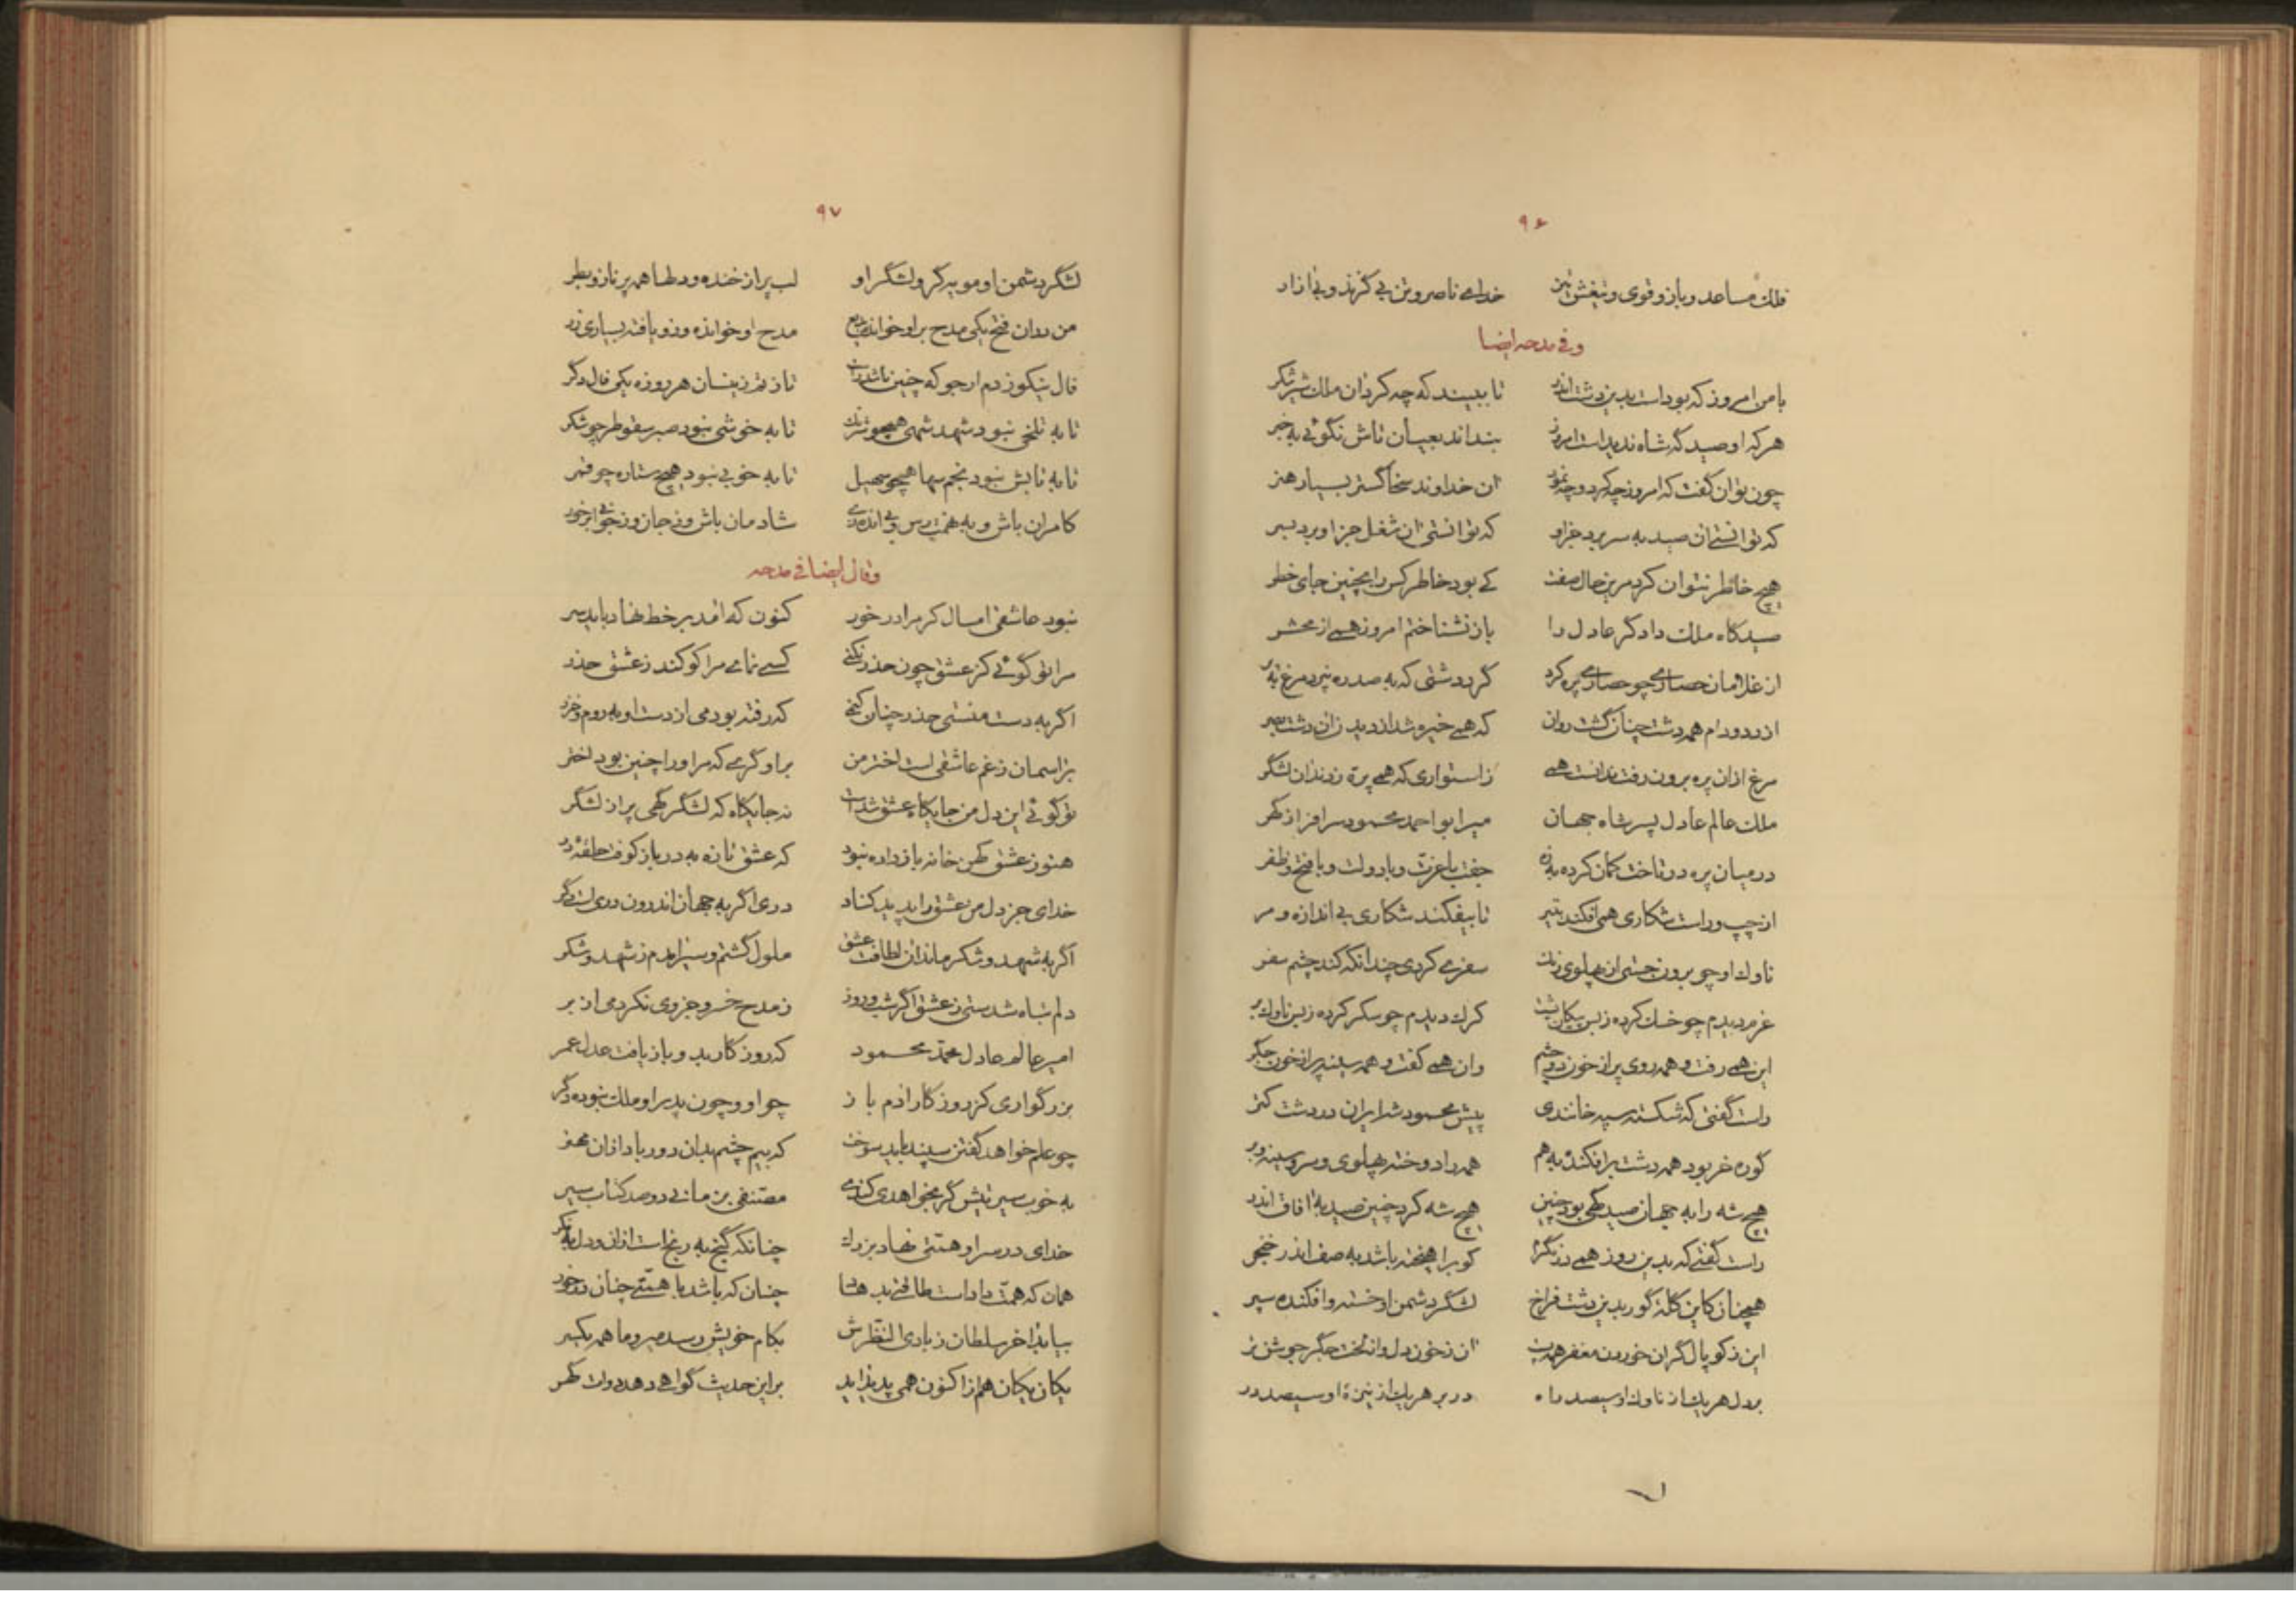 ۹۶
فلک مساعد و بازو قوی و تیغش تیز خدای ناصر و تن بی گزند و بی ازار
و فی مدحه ایضا
با من امروز که بود است بدین دشت اندر تا ببیند که چه کرد ان ملک شیر شکر
هر که او صید گه شاه ندید است امروز بنداند بعیان تاش نگوئی به خبر
چون توان گفت که امروز چه کرد و چه نمود ان خداوند سخا گستر بسیار هنر
که توانستی ان صید به سر برد جز او که توانستی ان شغل جز او برد بسر
هیچ خاطر نتوان کرد مرین حال صفت کی بود خاطر کس را بچنین جای خطر
صیدگاه ملک دادگر عادل را بازنشناختم امروز همی از محشر
از غلامان حصاری چو حصاری پره کرد گرد دشتی که به صد ره نپرد مرغ به پر
از دد و دام همه دشت چنان گشت روان که همی خیره شد از دیدن ان دشت بصر
مرغ ازان پره برون رفت ندانست همی ز استواری که همی پره زدند ان لشگر
ملک عالم عادل پسر شاه جهان میر ابو احمد محمود سرافراز گهر
در میان پره در تاخت کمان کرده به زه جفت با عزت و با دولت و با فتح و ظفر
از چپ و راست شکاری همی افکند بتیر تا بیفکند شکاری بی اندازه و مر
ناوک او چو برون جستی از پهلوی رنگ سفری کردی چندانکه کند چشم سفر
غرم دیدم چو خسک کرده ز بس پیکان پشت کرگ دیدم چو سکر کرده ز بس ناوک بر
این همی رفت و همه روی پر از خون دو چشم وان همی گفت و همه سینه پر از خون جگر
راست گفتی که شکسته سپه خانندی پیش محمود شه ایران در دشت کتر
گوره خر بود همه دشت برافکنده بهم همه را دوخته پهلوی و سر و سینه و بر
هیچ شه را به جهان صید گهی بود چنین هیچ شه کرد چنین صید به افاق اندر
راست گفتی که بدین روز همی زو نگرد کو برآهیخته باشد به صف اندر خنجر
همچنان کاین گله گور بدین دشت فراخ لشگر دشمن او خسته و افکنده سپر
این ز کوپال گران خورده مغفر همه پست ان ز خون دل وز لخت جگر جوشن تر
بر دل هر یک از ناوک او سیصد راه در بر هر یک از نیزه او سیصد در
۹۷
لشگر دشمن او مویه گر و لشگر او لب پر از خنده و دلها همه پر ناز و بطر
من دران فتح یکی مدح بر او خوانده بدیع مدح او خوانده و زو یافته بسیاری زر
فال نیکو زدم ارجو که چنین باشد راست تازند زینسان هر روزه یکی فال دگر
تا به تلخی نبود شهد شهی همچو شرنگ تا به خوشی نبود صبر سقوطر چو شکر
تا به تابش نبود نجم سها همچو سهیل تا به خوبی نبود هیچ ستاره چو قمر
کامران باش و به نهمت رس و بی انده زی شادمان باش و ز جان وز جوانی بر خور
و قال ایضا فی مدحه
نبود عاشقی امسال کر مرا در خور کنون که امد بر خط نهاد باید سر
مرا تو گوئی کز عشق چون حذر نکنی کسی نمای مرا کو کند ز عشق حذر
اگر به دست منستی حذر چنان کنمی که رفته بودمی از دست او به روم و خزر
بر اسمان ز غم عاشقی است اختر من بر او گری که مر او را چنین بود اختر
تو گوئی این دل من جایگاه عشق شدست نه جایگاه که لشگر گهی پر از لشگر
هنوز عشق کهن خانه باز داده نبود که عشق تازه به در باز کوفت حلقه در
خدای جز دل من عشق را پدید کناد دری اگر به جهان اندرون دری است دگر
اگر به شهد و شکر ماند ان لطافت عشق ملول گشتم و سیر امدم ز شهد و شکر
دلم تباه شدستی ز عشق اگر شب و روز ز مدح خسرو جزوی نکردمی از بر
امیر عالم عادل محمد محمود که روزگار بدو باز یافت عدل عمر
بزرگواری کز روزگار ادم باز چو او و چون پدر او ملک نبوده دگر
چو علم خواهد گفتن سپند باید سوخت که بیم چشم بدان دور باد ازان محضر
به خوب سیرتیش گر بخواهدی کندی مصنفی بزمانی دو صد کتاب سیر
خدای در سر او همتی نهاد بزرگ چنانکه گنج به رنج است ازان و دل به فکر
همان که همت داد است طالعی بدهاد چنان که باشد با همتی چنان در خور
بیابد اخر سلطان ز باری النظرش بکام خویش رسد میر و ما همه یکسر
یکان یکان هم از اکنون همی پدید اید بر این حدیث گواهی دهد دولت گهر